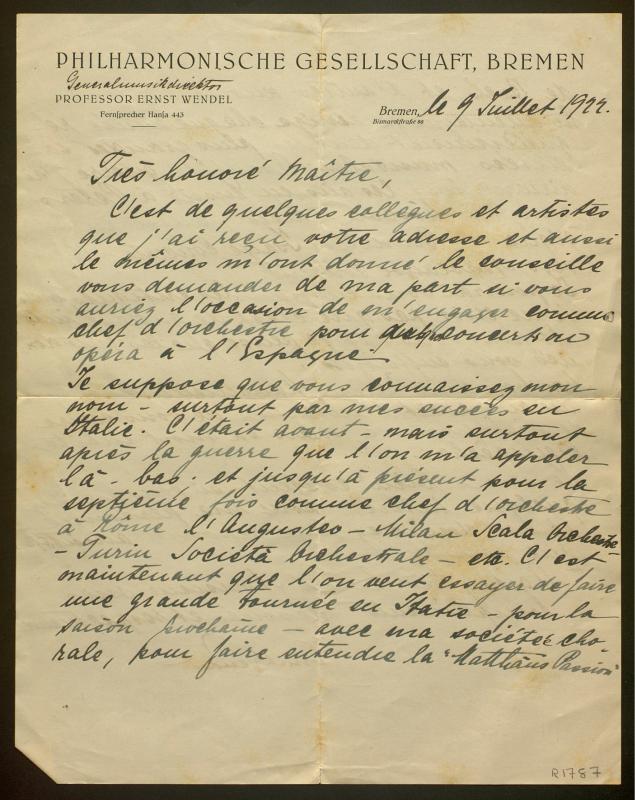 PHILHARMONISCHE GESELLSCHAFT, BREMEN
Generalmusikdirektor
PROFESSOR ERNST WENDEL
Fernſprecher Hanſa 443
Bremen, le 9 Juillet 1922.
Bismarckſtraße
Très honoré Maître,
C'est de quelques collègues et artistes
que j'ai reçu votre adresse et aussi
le mêmes m'ont donné le conseille
vous demander de ma part si vous
auriez l'occasion de m'engager comme
chef d'orchestre pour concerts ou
opéra à l'Espagne.
Je suppose que vous connaissez mon
nom – surtout par mes succès en
Italie. C'était avant – mais surtout
après la guerre que l'on m'a appeler
là-bas. et jusqu'à présent pour la
septième fois comme chef d'orchestre
à Rôme l'Augusteo – Milan Scala Orchestre
– Turin Società Orchestrale – etc. C'est
maintenant que l'on veut essayer de faire
une grande Tournée en Italie – pour la
saison prochaine – avec ma société cho-
rale, pour faire entendre la "Matthäus Passion"
R1787